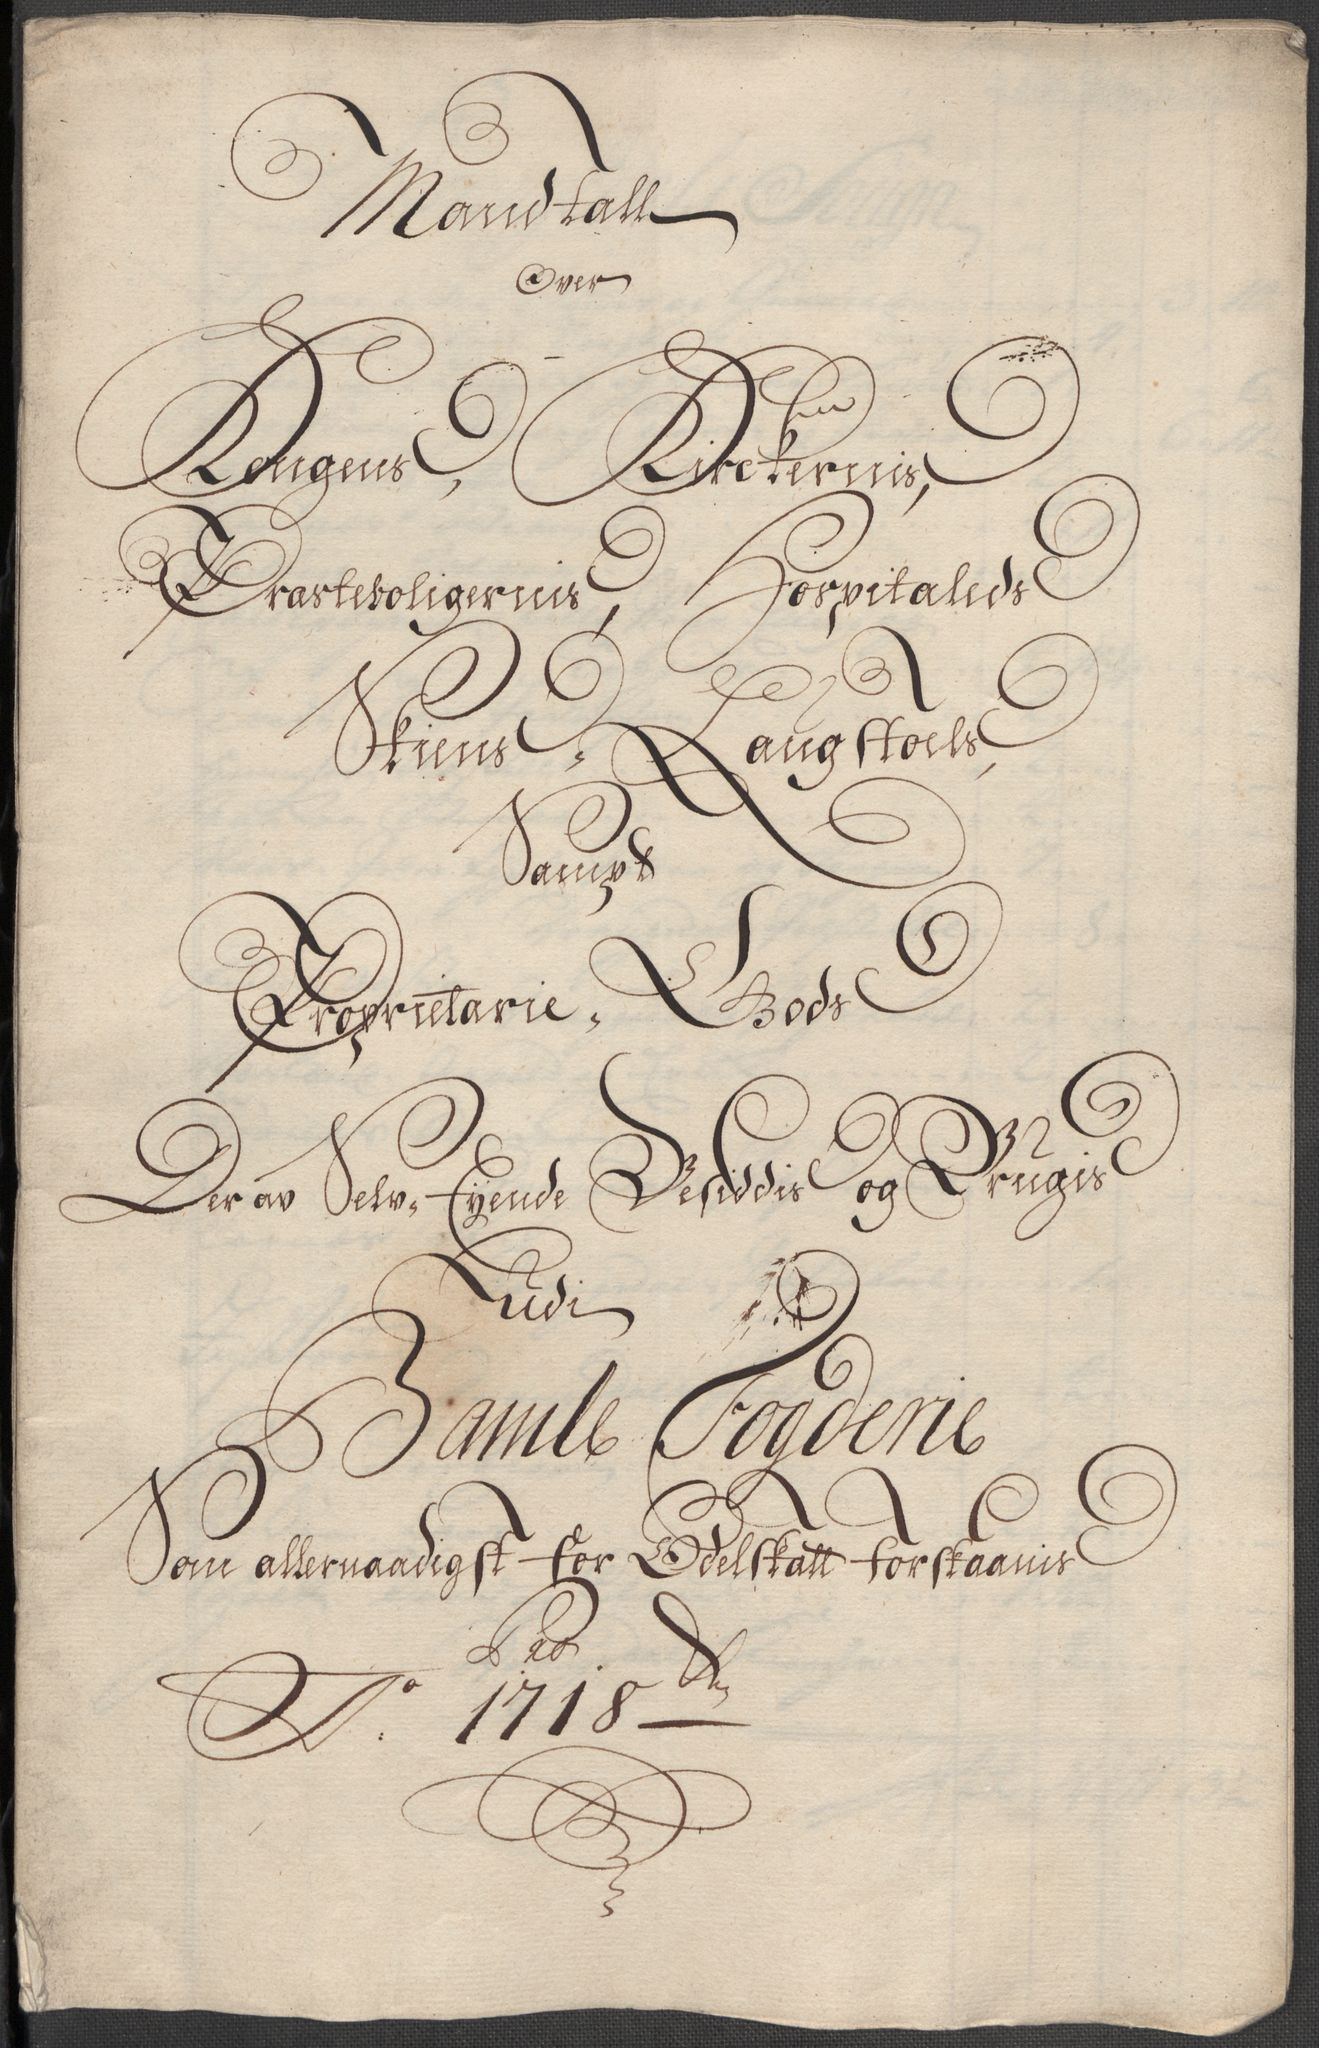 Mandtall
Over
Kongens, Kirckernis,
Præsteboligernis, Hospitaleds
Skiens, Laugstoels,
Sampt
Proprietarie, Gods
Der av Selv-Eyende Besiddis og Brugis
Udi
Bamle Fogderie
Som allernaadigst for Odelskatt forskaanis
Pro
Ao. 1718